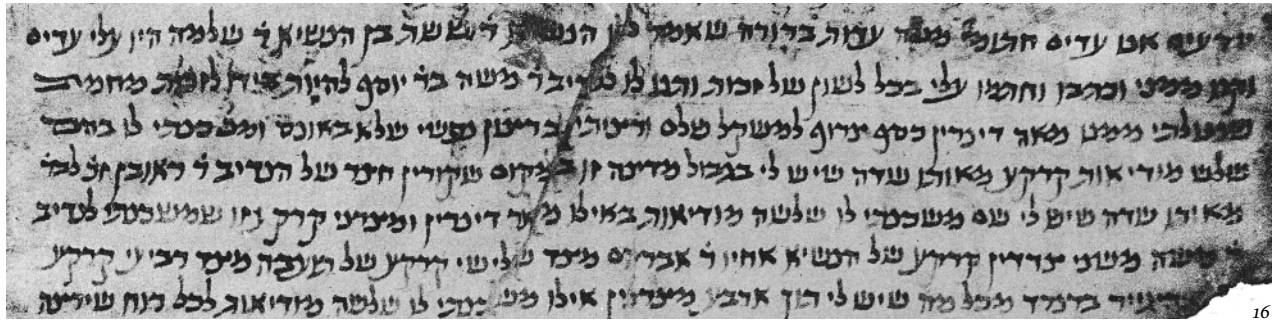 יודעים אנו עדים חתומי מטה עדות ברורה שאמר לנו הנשיא ר ששת בן הנשיא ר שלמה היו עלי עדים
וקנו ממני וכתבו וחתמו עלי בכל לשון של זכות ותנו לו לנדיב ר משה בר יוסף להיות בידו לזכות מחמת
שנטלתי ממנו מאה דינרין כסף צרוף למשקל שלם ורציתי ברצון נפשי שלא באונס ומשכנתי לו בהם
שלש מודיאות קרקע מאותו שדה שיש לי בגבול מדינה זו במקום שקורין של הנדיב ר ראובן
מאותו שדה שיש לי שם משכנתי לו שלשה מודיאות באילו מאה דינרין ומצרני קרקע זו שמשכנתי לנדיב
ר משה משני צדדין קרקע של הנשיא אחיו ר אברהם מצד שלישי קרקע של מצד רביעי קרקע
בדרך מכל מה שיש לי תוך ארבע מצרנין אילו משכנתי לו שלשה מודיאות לכל רוח שירצה
16